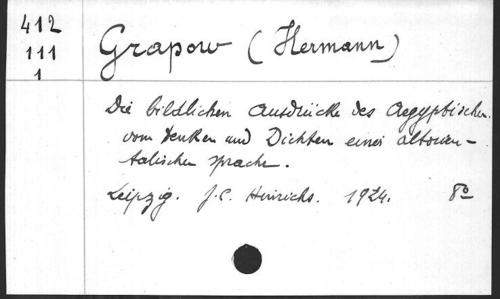 412
111
1
Grapow (Hermann)
Die bildlichen Ausdrücke des Aegyptischen.
vom Denken und Dichten einer altorien-
talischen Sprache.
Leipzig. J.C. Hinrichs. 1924. 8o